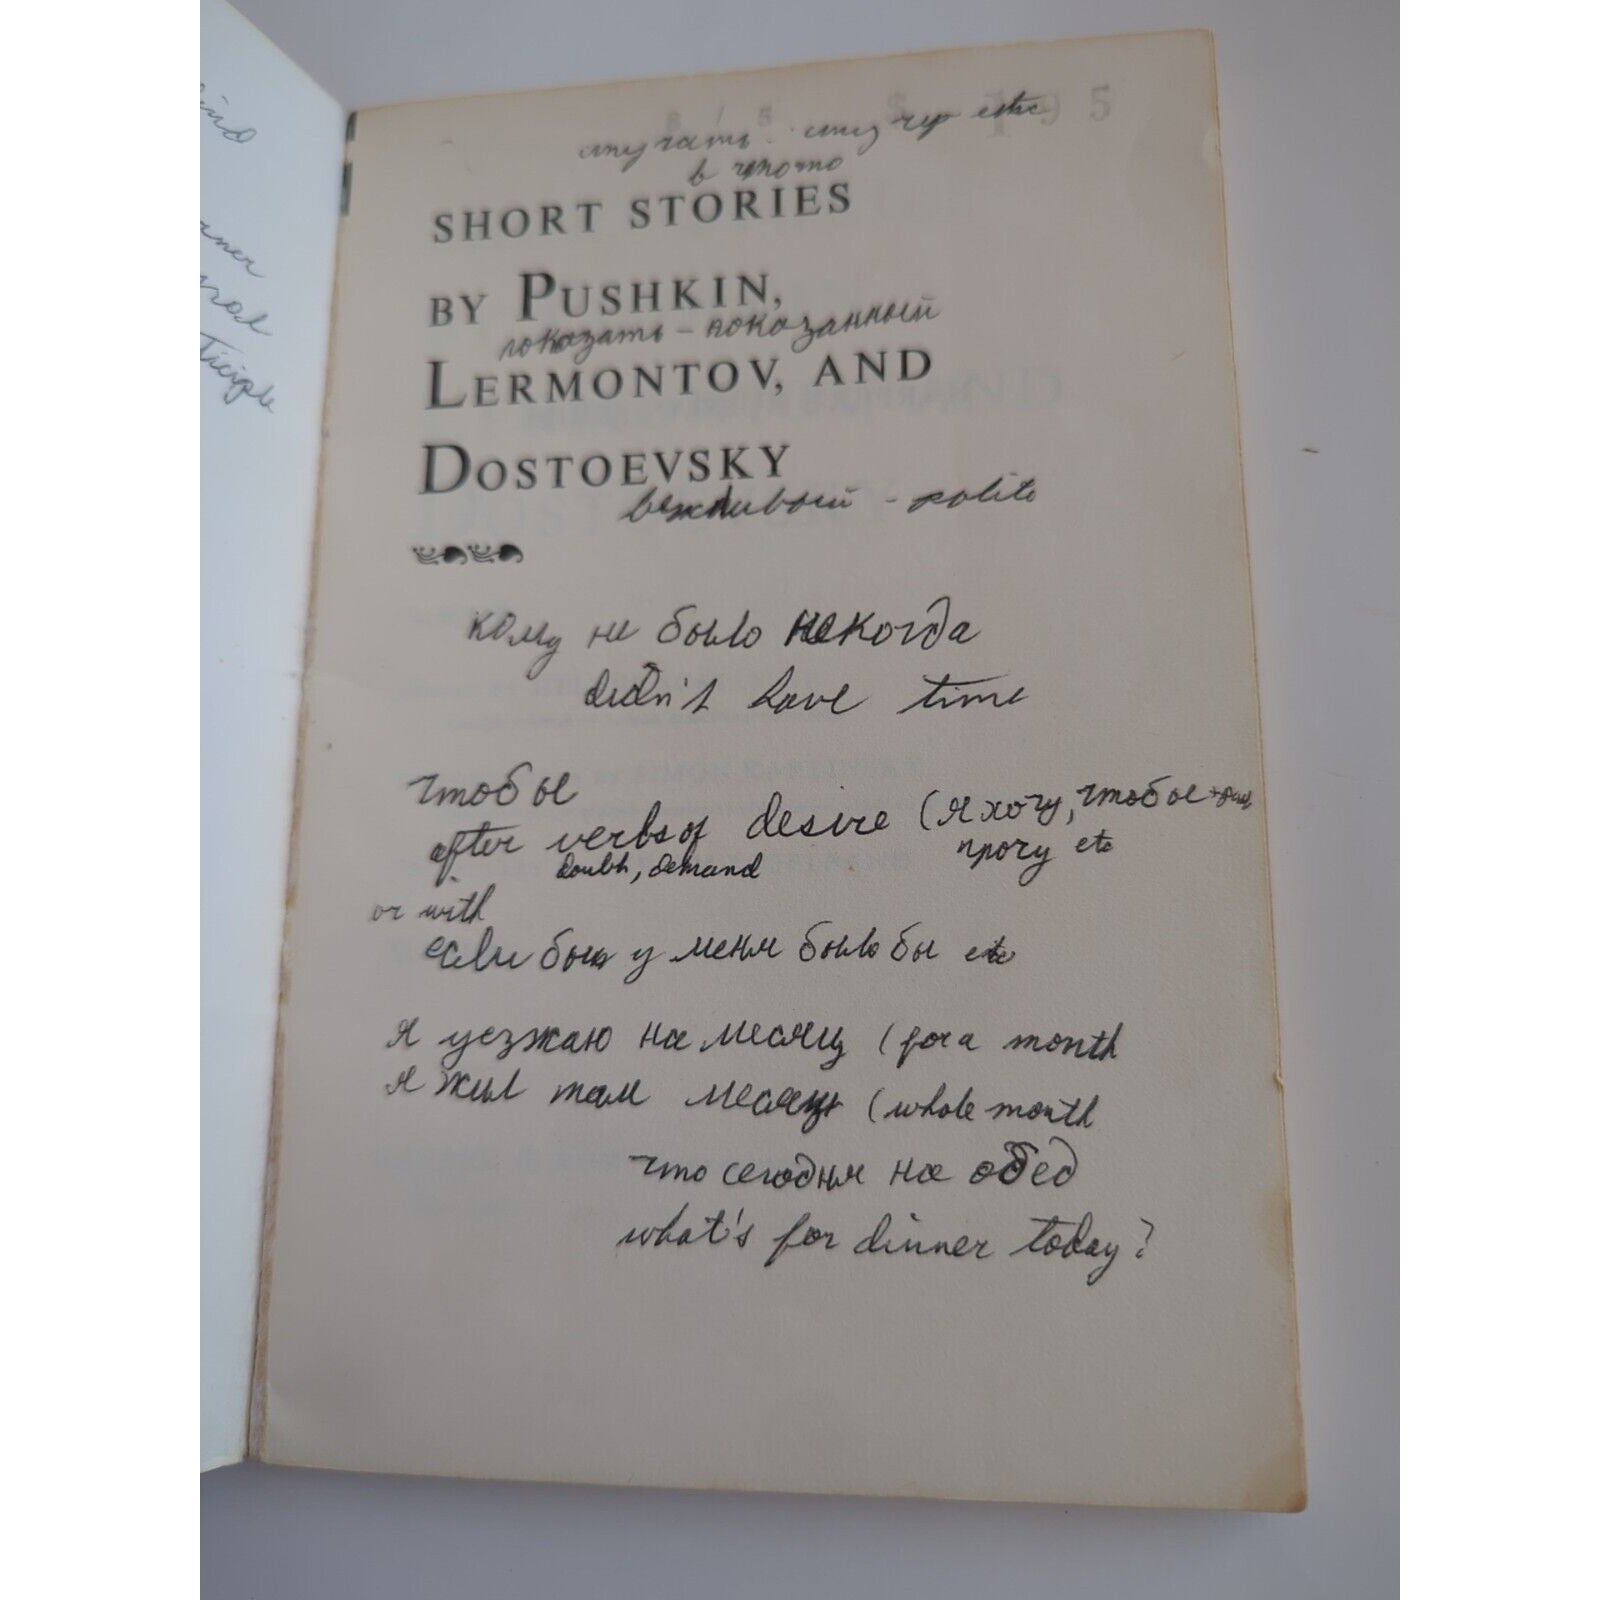 стучать
в что то
SHORT STORIES
BY PUSHKIN,
показать - показанный
LERMONTOV, AND
DOSTOEVSKY
вежливый - polite
кому не было некогда
didn't have time
чтобы
after verbs of desire (я хочу, чтобы
doubt, demand прошу etc
or with
если бы у меня было бы etc
я уезжаю на месяц (for a month
я жил там месяц (whole month
что сегодня на обед
what's for dinner today?